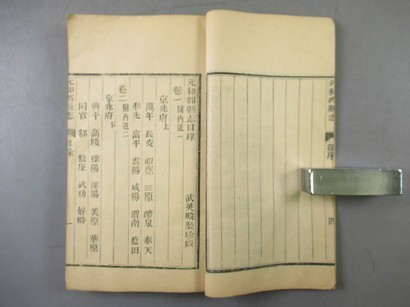 元和郡縣志
四
元和郡縣志目錄 武英殿聚珍版
卷一 關内道一
京兆府上
萬年 長安 昭應 三原 醴泉 奉天
奉先 富平 雲陽 咸陽 渭南 藍田
卷二 關内道二
京兆府下
興平 高陵 櫟陽 涇陽 美原 華原
同官 鄠 盩厔 武功 好畤
元和郡縣志 目錄 一